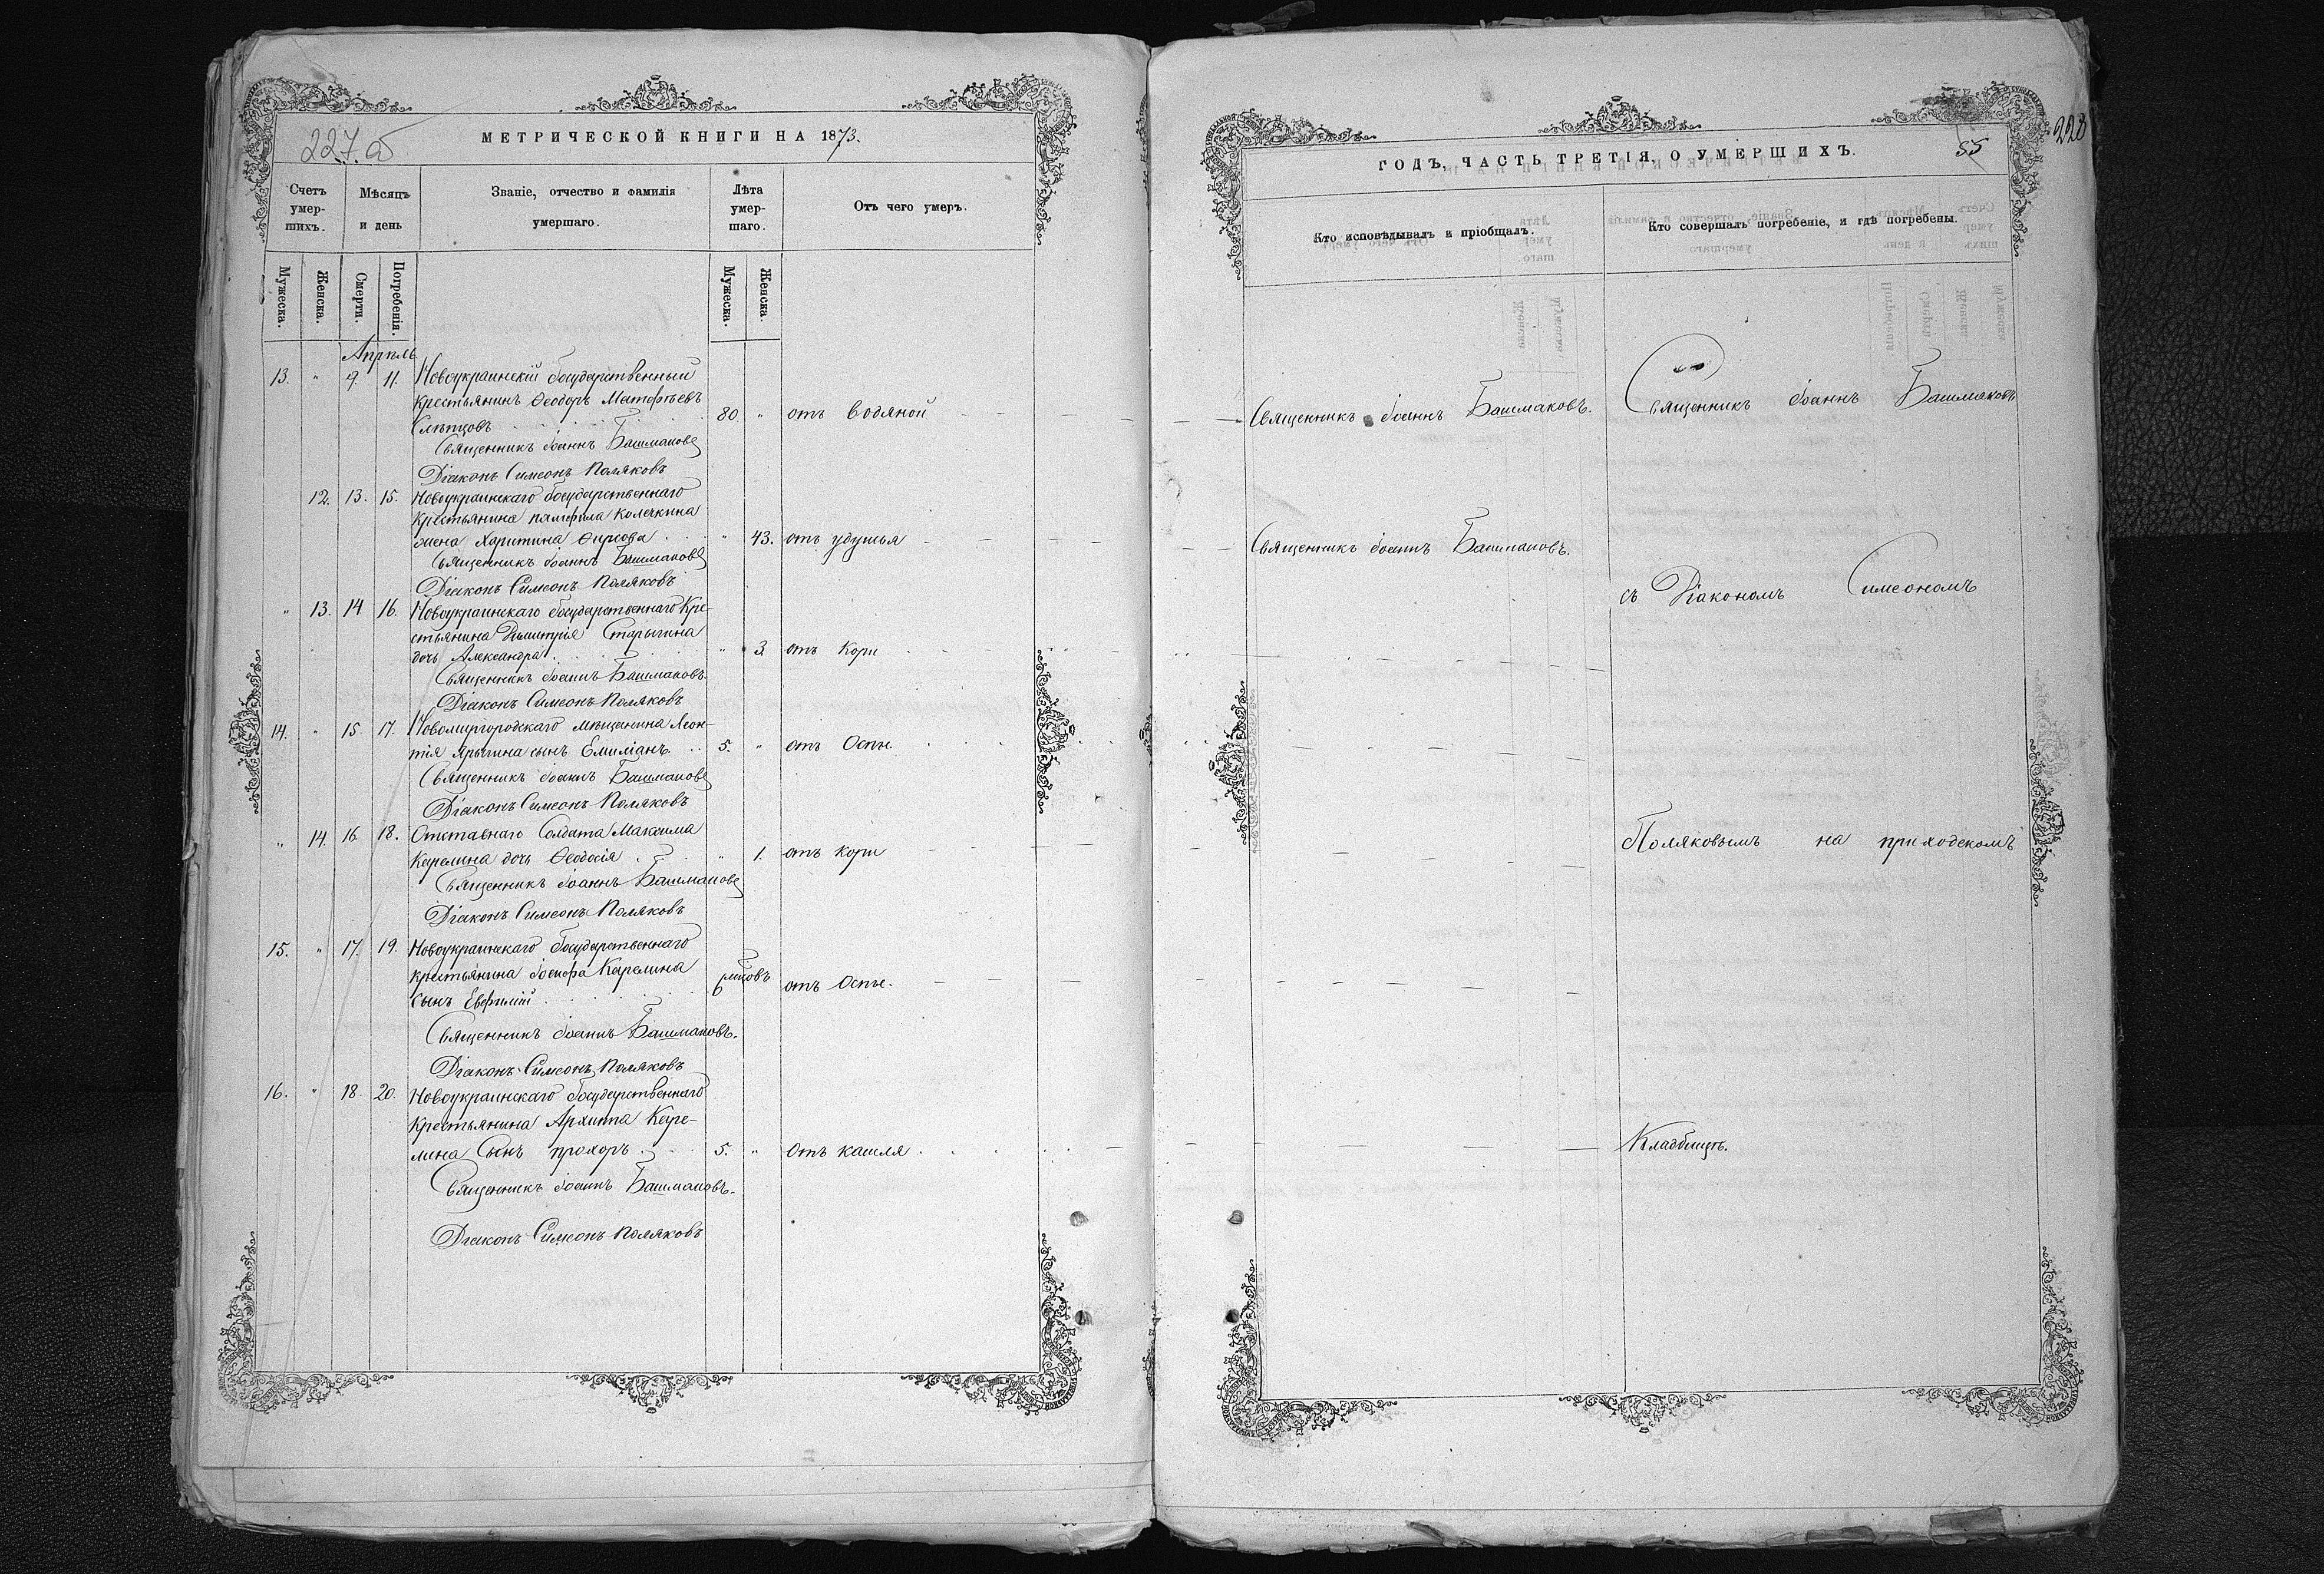 227 об
МЕТРИЧЕСКОЙ КНИГИ НА 1873.
Счетъ умер-шихъ.
Мѣсяцъ и день
Званіе, отчество и фамилія умершаго.
Лѣта умер-шаго.
Отъ чего умеръ.
Мужеска.
Женска.
Смерти.
Погребенія.
Мужеска.
Женска.
Апрѣль
13. " 9. 11. Новоукраинскій Государственный
крестьянинъ Ѳеодоръ Матѳѣевъ
Слѣпцовъ 80 " отъ водяной
Священникъ Іоаннъ Башмаковъ
Діаконъ Симеонъ Поляковъ
12. 13. 15. Новоукраинскаго Государственнаго
Крестьянина Памфила Колечкина
жена Харитина Фирсова " 43. отъ удушья
Священникъ Іоаннъ Башмаковъ
Діаконъ Симеонъ Поляковъ
" 13. 14 16. Новоукраинскаго Государственнаго Кре-
стьянина Димитрія Старыгина
дочь Александра " 3. отъ Кори
Священникъ Іоаннъ Башмаковъ.
Діаконъ Симеонъ Поляковъ
14. " 15. 17. Новомиргородскаго мѣщанина Леон-
тія Ярыгина сынъ Емиліанъ 5. " отъ Оспы.
Священникъ Іоаннъ Башмаковъ
Діаконъ Симеонъ Поляковъ
" 14. 16. 18. Отставнаго Солдата Максима
Карелина дочь Ѳеодосія " 1. отъ кори
Священникъ Іоаннъ Башмаковъ
Діаконъ Симеонъ Поляковъ
15. " 17. 19. Новоукраинскаго Государственнаго
крестьянина Іосифа Карелина
сынъ Евфимій отъ Оспы.
Священникъ Іоаннъ Башмаковъ.
Діаконъ Симеонъ Поляковъ
16. " 18. 20. Новоукраинскаго Государственнаго
Крестьянина Архипа Каре-
лина Сынъ Прохоръ 5. " отъ кашля
Священникъ Іоаннъ Башмаковъ.
Діаконъ Симеонъ Поляковъ
228
ГОДЪ, ЧАСТЬ ТРЕТІЯ, О УМЕРШИХЪ.
55
Кто исповѣдывалъ и пріобщалъ.
Кто совершалъ погребеніе, и гдѣ погребены.
Священникъ Іоаннъ Башмаковъ.
Священникъ Іоаннъ Башмаковъ
Священникъ Іоаннъ Башмаковъ.
съ Діакономъ Симеономъ
Поляковымъ на приходскомъ
Кладбищѣ.